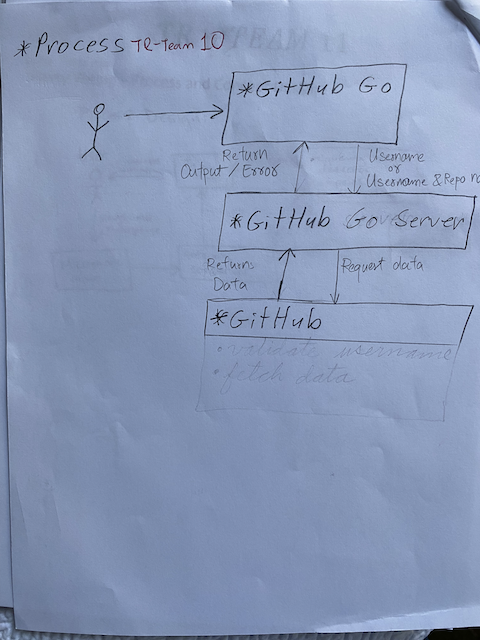 *Process TR-Team 10
*GitHub Go
Return
Output/Error
Username
or
Username & Repo
*GitHub Go Server
Returns
Data
Request data
*GitHub
• validate username
• fetch data